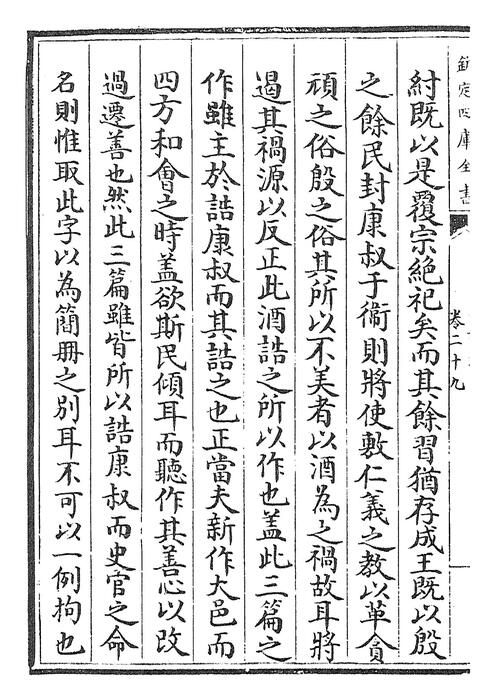 欽定四庫全書
卷二十九
紂既以是覆宗絶祀矣而其餘習猶存成王既以殷
之餘民封康叔于衞則將使敷仁義之教以革貪
頑之俗殷之俗其所以不美者以酒為之禍故耳將
遏其禍源以反正此酒誥之所以作也盖此三篇之
作雖主於誥康叔而其誥之也正當夫新作大邑而
四方和會之時盖欲斯民傾耳而聽作其善心以改
過遷善也然此三篇雖皆所以誥康叔而史官之命
名則惟取此字以為簡冊之别耳不可以一例拘也